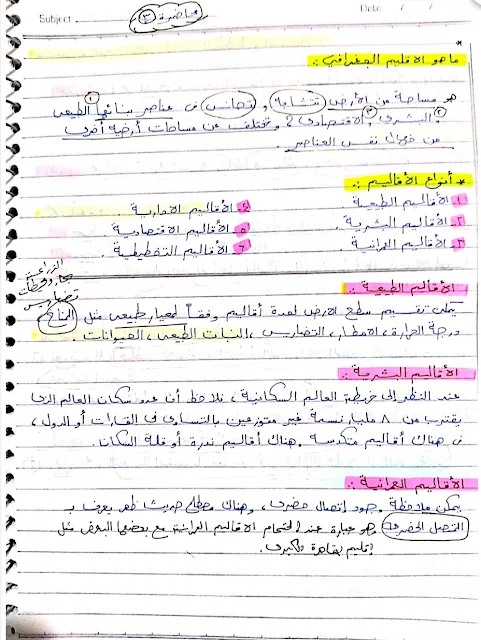 Subject
محاضرة ٣
Date / /
* ما هو الاقليم الجغرافي :.
هو مساحة من الأرض متشابهة و تجانس فى عناصر بنائها الطبيعى ①
② والبشرى ③ والاقتصادى ؟ وتختلف عن مساحات أرضية أخرى
من خلال نفس العناصر.
* أنواع الأقاليم :.
١. الأقاليم الطبيعية
٤. الأقاليم الادارية.
٢. الأقاليم البشرية.
٥. الأقاليم الاقتصادية
٣. الأقاليم العمرانية
٦. الأقاليم التخطيطية.
تضاريس
الأقاليم الطبيعية :.
يمكن تقسيم سطح الارض لعدة أقاليم وفقاً لمعيار طبيعى مثل المناخ
درجة الحرارة، الامطار، التضاريس، النبات الطبيعى، الحيوانات.
الأقاليم البشرية :.
عند النظر إلى خريطة العالم السكانية، نلاحظ أن عدد سكان العالم الذى
يقترب من ٨ مليار نسمة غير متوزعين بالتساوى فى القارات أو الدول،
فـ هناك أقاليم متكدسة وهناك أقاليم ندرة أو قلة السكان.
الأقاليم العمرانية :.
يمكن ملاحظة وجود إتصال حضرى، وهناك مصطلح حديث ظهر يعرف بـ
المتصل الحضرى وهو عبارة عند إلتحام الاقاليم العمرانية مع بعضها البعض مثل
إقليم القاهرة الكبرى.